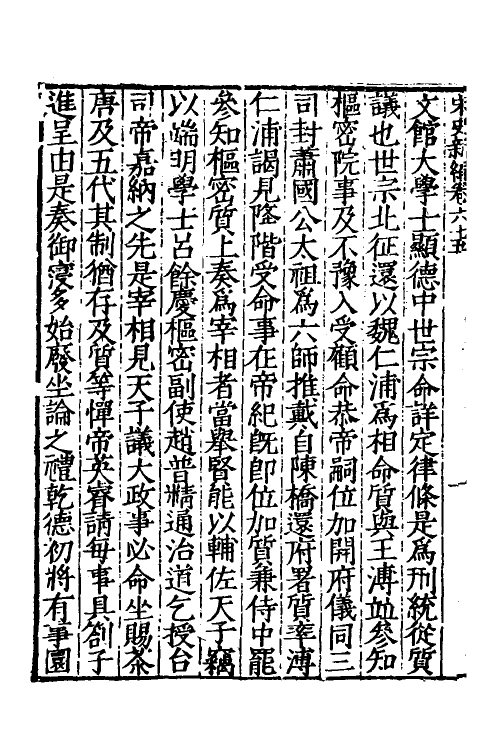 宋史新編卷六十五
文館大學士顯德中世宗命詳定律條是爲刑統從質
議也世宗北征還以魏仁浦爲相命質與王溥並參知
樞密院事及不豫入受顧命恭帝嗣位加開府儀同三
司封蕭國公太祖爲六師推戴自陳橋還府署質率溥
仁浦謁見降階受命事在帝紀旣卽位加質兼侍中罷
參知樞密質上奏爲宰相者當舉賢能以輔佐天子竊
以端明學士呂餘慶樞密副使趙普精通治道乞授台
司帝嘉納之先是宰相見天子議大政事必命坐賜茶
唐及五代其制猶存及質等憚帝英睿請每事具劄子
進呈由是奏御寖多始廢坐論之禮乾德初將有事圜